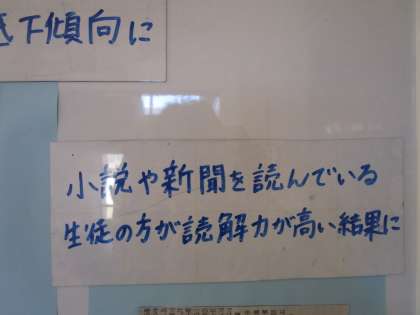 低下傾向に
小説や新聞を読んでいる
生徒の方が読解力が高い結果に